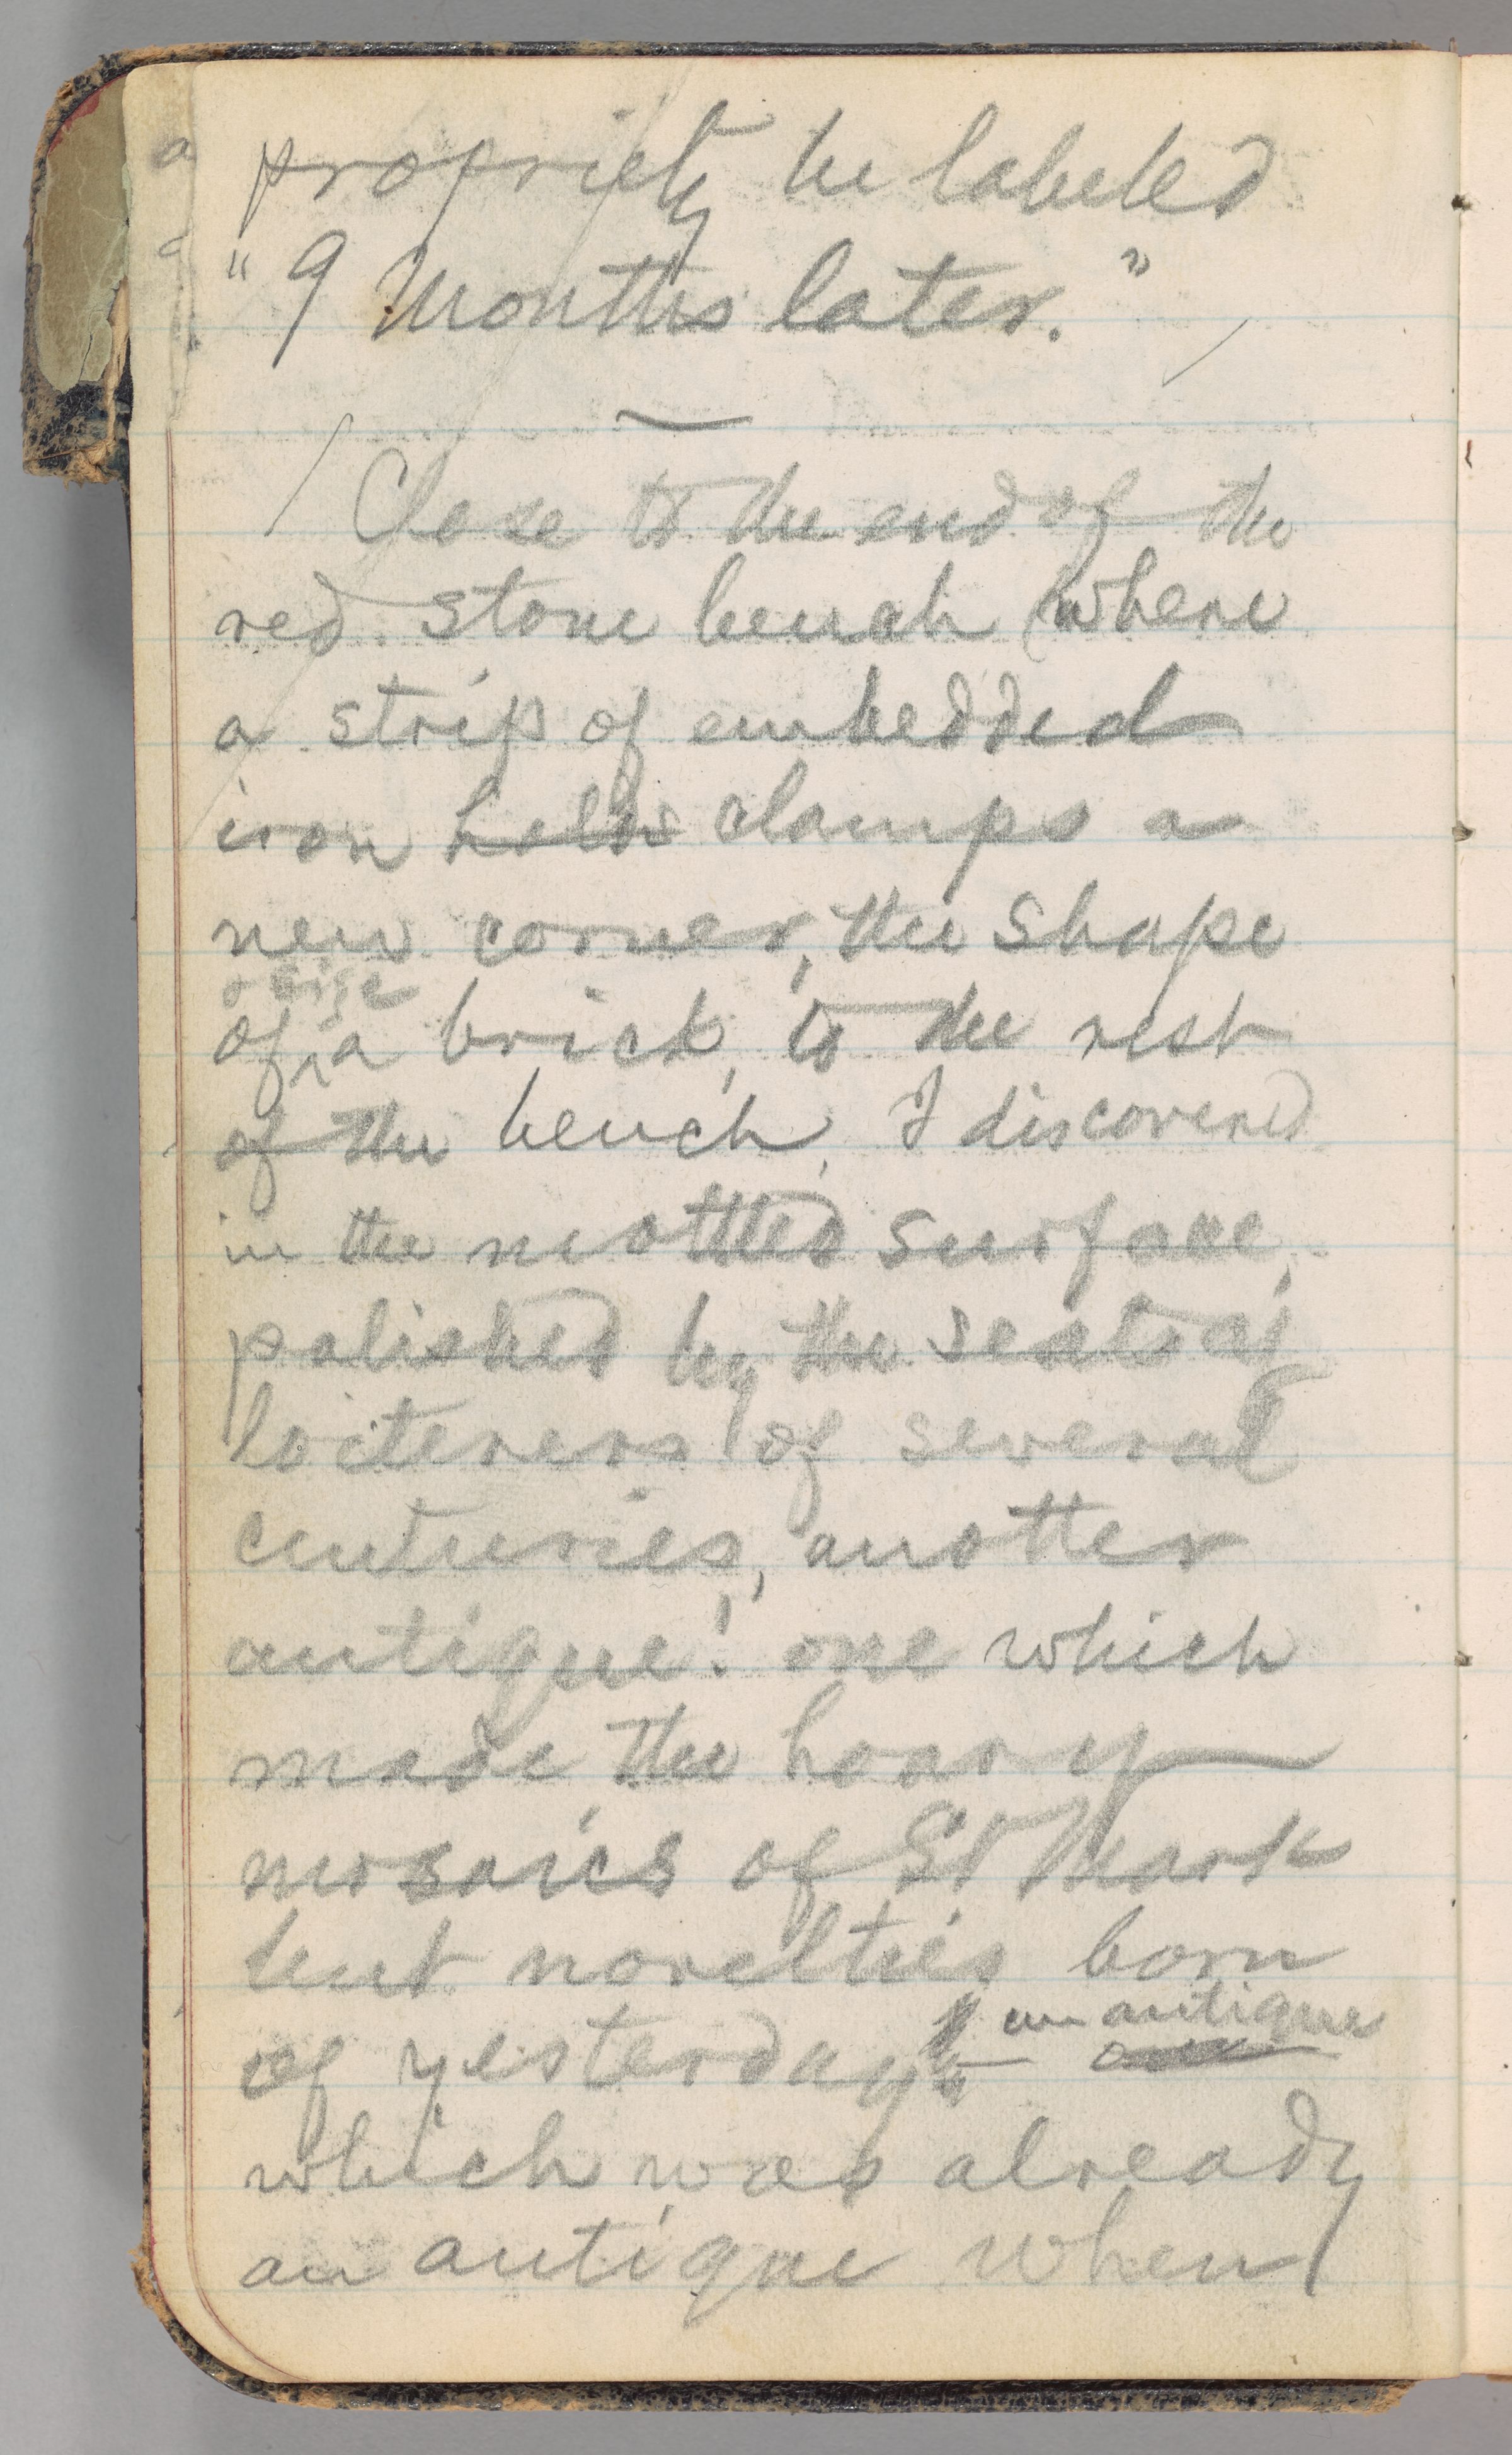 propriety be labeled
"9 Months later."
Close to the end of the
red stone bench (where
a strip of embedded
iron holds clamps a
new corner, the shape
& size
of a brick, to the rest
of the bench, I discovered
in the mottled surface,
polished by the seats of
loiterers of several
centuries, another
antique! one which
made the hoary
mosaics of St Mark
but novelties born
an antique
of yesterday –
which was already
an antique when